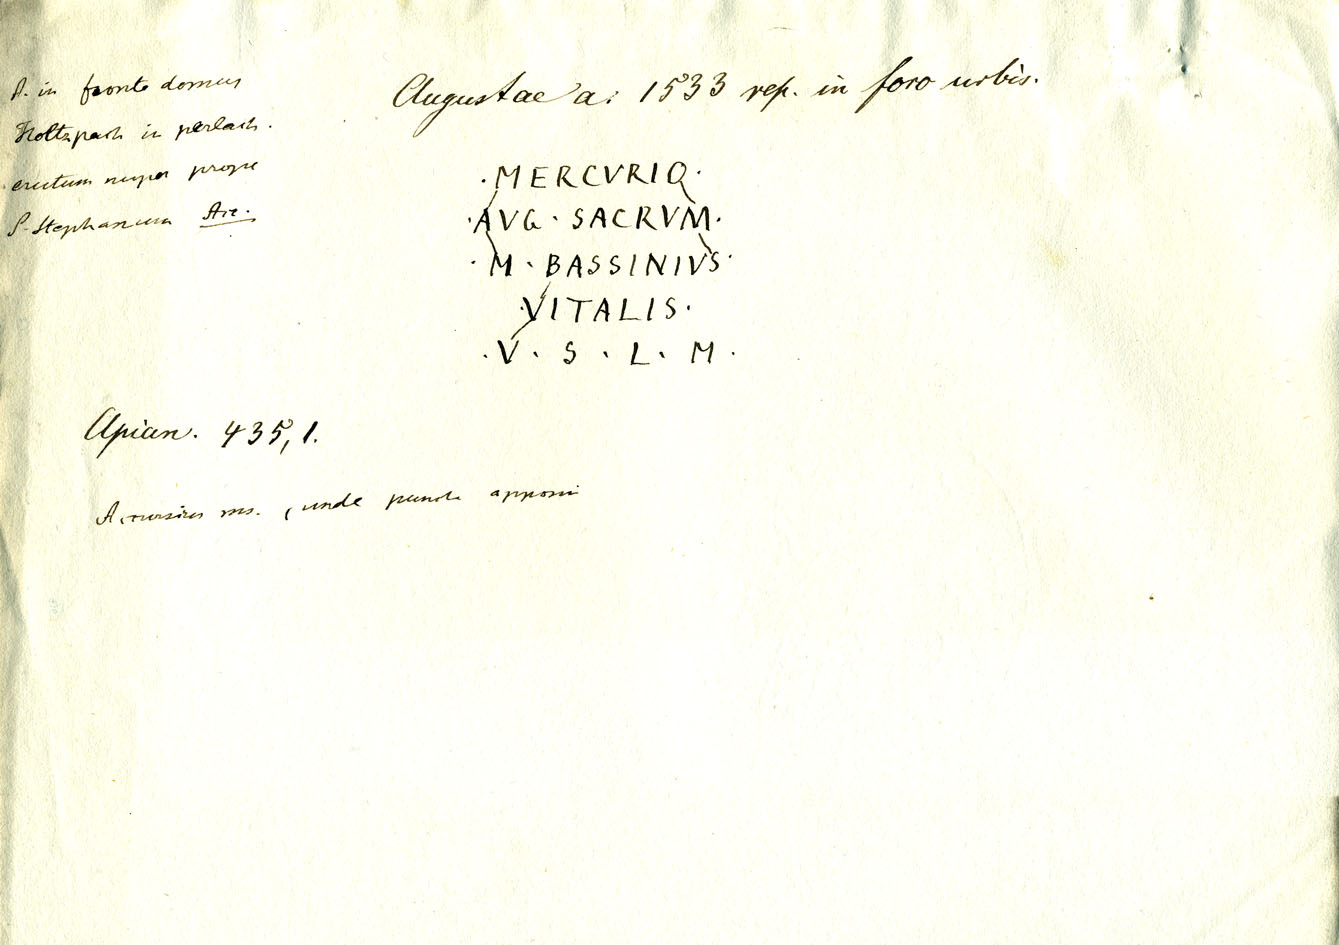 A. in fronte domus
Holtzpach in perlach.
erutum nuper prope
S. Stephanum Acc.
Augustae a. 1533 rep. in foro urbis.
·MERCVRIO·
·AVG·SACRVM·
·M·BASSINIVS·
·VITALIS·
·V·S·L·M·
Apian. 435, 1.
Accursius ms., unde puncta apposui